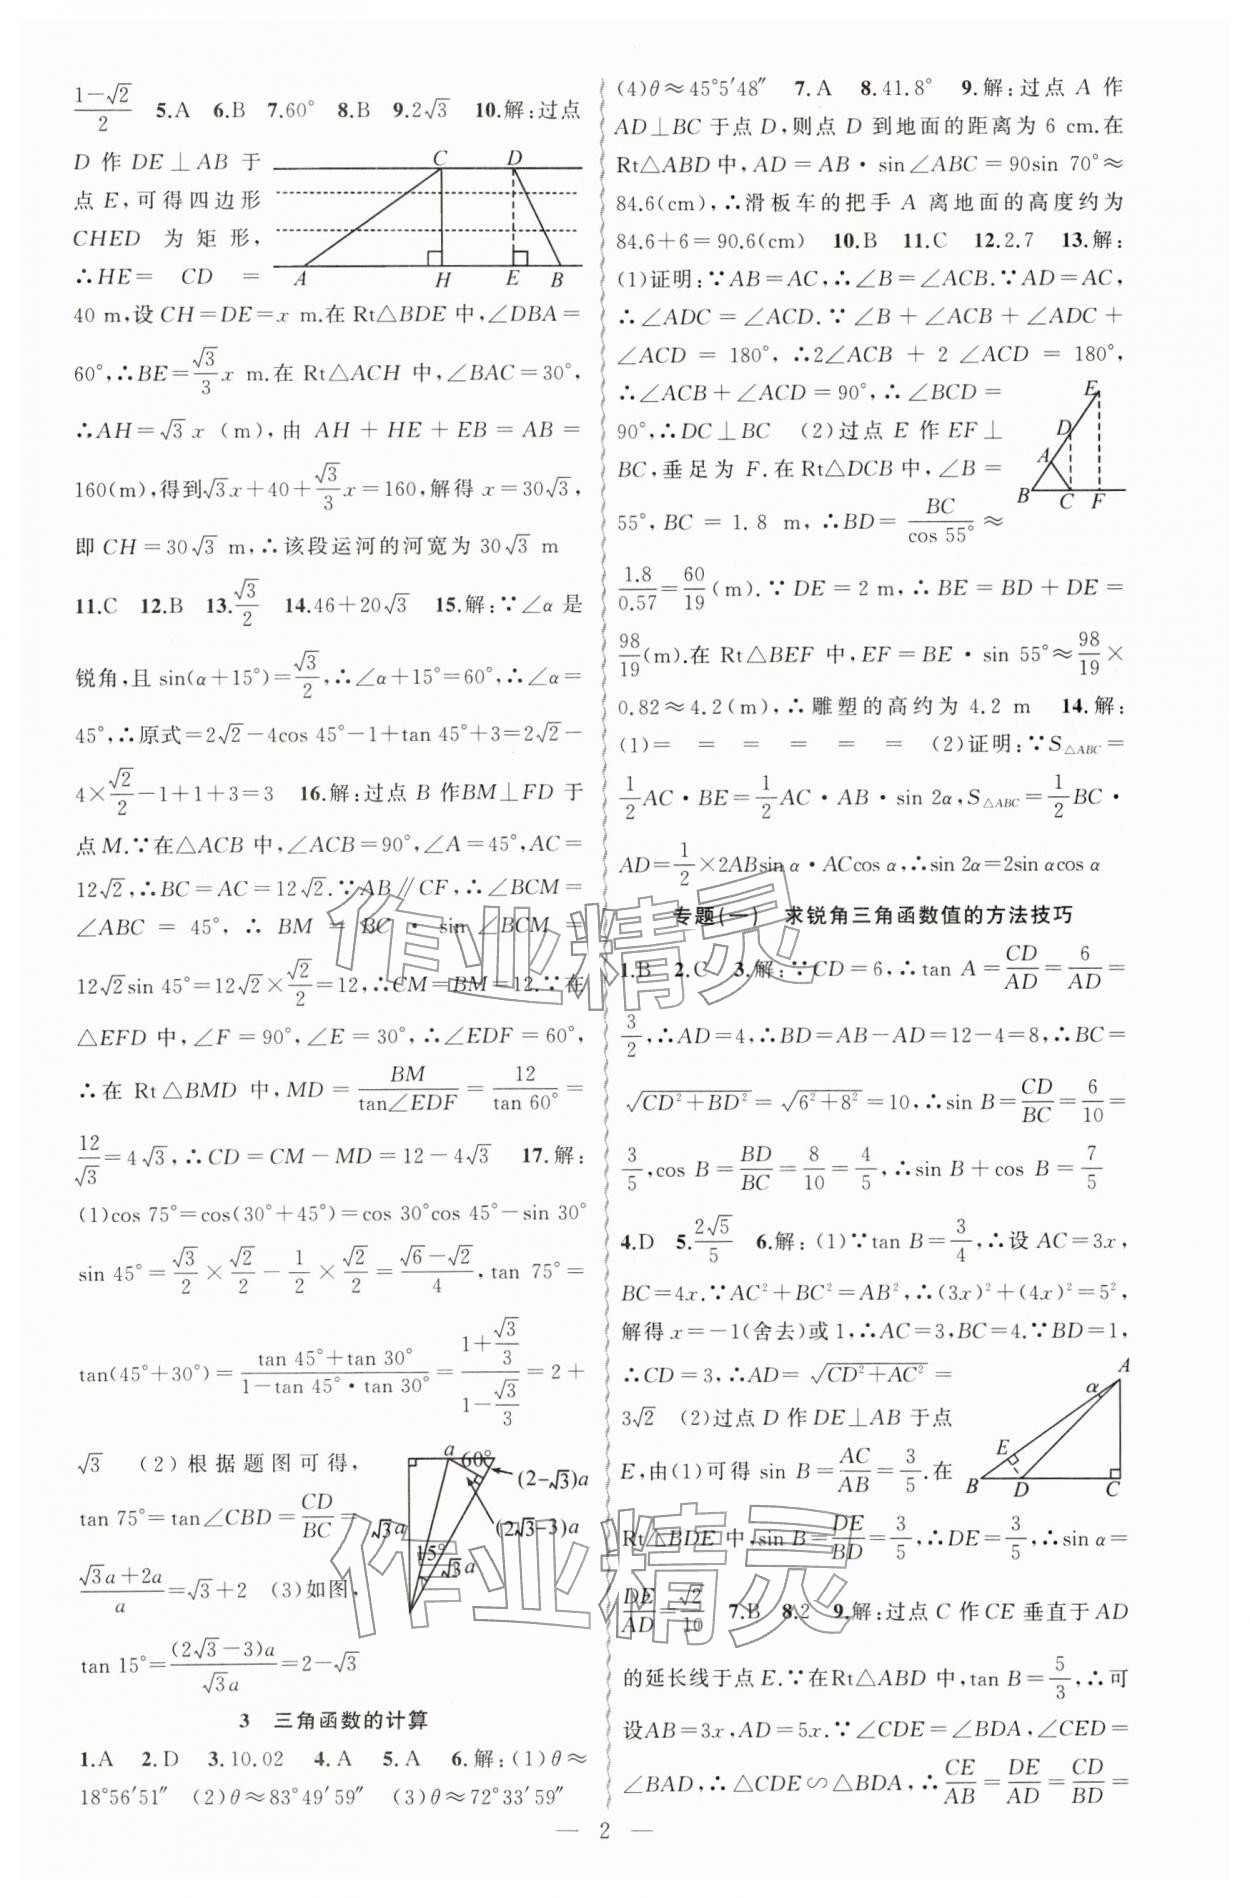 $\frac{1-\sqrt{2}}{2}$ 5.A 6.B 7.60° 8.B 9.2√3 10.解:过点
D 作 DE⊥AB 于
点 E,可得四边形
CHED 为矩形,
∴HE= CD =
C D
A H E B
40 m,设 CH=DE=x m.在 Rt△BDE 中,∠DBA=
60°,∴BE=$\frac{\sqrt{3}}{3}$x m.在 Rt△ACH 中,∠BAC=30°,
∴AH=√3x (m),由 AH+HE+EB=AB=
160(m),得到√3x+40+$\frac{\sqrt{3}}{3}$x=160,解得 x=30√3,
即 CH=30√3 m,∴该段运河的河宽为 30√3 m
11.C 12.B 13.$\frac{\sqrt{3}}{2}$ 14.46+20√3 15.解:∵∠α是
锐角,且 sin(α+15°)=$\frac{\sqrt{3}}{2}$,∴∠α+15°=60°,∴∠α=
45°,∴原式=2√2-4cos 45°-1+tan 45°+3=2√2-
4×$\frac{\sqrt{2}}{2}$-1+1+3=3 16.解:过点 B 作BM⊥FD 于
点 M.∵在△ACB 中,∠ACB=90°,∠A=45°,AC=
12√2,∴BC=AC=12√2.∵AB∥CF,∴∠BCM=
∠ABC = 45°,∴ BM = BC · sin∠BCM=
12√2sin 45°=12√2×$\frac{\sqrt{2}}{2}$=12,∴CM=BM=12.∵在
△EFD 中,∠F=90°,∠E=30°,∴∠EDF=60°,
∴在 Rt△BMD 中,MD=$\frac{BM}{\tan∠EDF}$=$\frac{12}{\tan 60°}$=
$\frac{12}{\sqrt{3}}$=4√3,∴CD=CM-MD=12-4√3 17.解:
(1)cos 75°=cos(30°+45°)=cos 30°cos 45°-sin 30°
sin 45°=$\frac{\sqrt{3}}{2}$×$\frac{\sqrt{2}}{2}$-$\frac{1}{2}$×$\frac{\sqrt{2}}{2}$=$\frac{\sqrt{6}-\sqrt{2}}{4}$,tan 75°=
tan(45°+30°)=$\frac{\tan 45°+\tan 30°}{1-\tan 45°·\tan 30°}$=$\frac{1+\frac{\sqrt{3}}{3}}{1-\frac{\sqrt{3}}{3}}$=2+
√3 (2)根据题图可得,
tan 75°=tan∠CBD=$\frac{CD}{BC}$=
$\frac{\sqrt{3}a+2a}{a}$=√3+2 (3)如图,
tan 15°=$\frac{(2\sqrt{3}-3)a}{\sqrt{3}a}$=2-√3
a 60°
(2-√3)a
(2√3-3)a
√3a
15°
√3a
3 三角函数的计算
1.A 2.D 3.10.02 4.A 5.A 6.解:(1)θ≈
18°56′51″ (2)θ≈83°49′59″ (3)θ≈72°33′59″
(4)θ≈45°5′48″ 7.A 8.41.8° 9.解:过点 A 作
AD⊥BC 于点 D,则点 D 到地面的距离为 6 cm.在
Rt△ABD 中,AD=AB·sin∠ABC=90sin 70°≈
84.6(cm),∴滑板车的把手 A 离地面的高度约为
84.6+6=90.6(cm) 10.B 11.C 12.2.7 13.解:
(1)证明:∵AB=AC,∴∠B=∠ACB.∵AD=AC,
∴∠ADC=∠ACD.∵∠B+∠ACB+∠ADC+
∠ACD = 180°,∴2∠ACB + 2 ∠ACD = 180°,
∴∠ACB+∠ACD=90°,∴∠BCD=
90°,∴DC⊥BC (2)过点 E 作 EF⊥
BC,垂足为 F.在Rt△DCB 中,∠B=
55°,BC = 1.8 m,∴BD=$\frac{BC}{\cos 55°}$≈
E
D
A
B C F
$\frac{1.8}{0.57}$=$\frac{60}{19}$(m).∵DE=2 m,∴BE=BD+DE=
$\frac{98}{19}$(m).在 Rt△BEF 中,EF=BE·sin 55°≈$\frac{98}{19}$×
0.82≈4.2(m),∴雕塑的高约为 4.2 m 14.解:
(1)= = = = = = (2)证明:∵S△ABC=
$\frac{1}{2}$AC·BE=$\frac{1}{2}$AC·AB·sin 2α,S△ABC=$\frac{1}{2}$BC·
AD=$\frac{1}{2}$×2ABsin α·ACcos α,∴sin 2α=2sin αcos α
专题(一) 求锐角三角函数值的方法技巧
1.B 2.C 3.解:∵CD=6,∴tan A=$\frac{CD}{AD}$=$\frac{6}{AD}$=
$\frac{3}{2}$,∴AD=4,∴BD=AB-AD=12-4=8,∴BC=
$\sqrt{CD^2+BD^2}$=$\sqrt{6^2+8^2}$=10,∴sin B=$\frac{CD}{BC}$=$\frac{6}{10}$=
$\frac{3}{5}$,cos B=$\frac{BD}{BC}$=$\frac{8}{10}$=$\frac{4}{5}$,∴sin B+cos B=$\frac{7}{5}$
4.D 5.$\frac{2\sqrt{5}}{5}$ 6.解:(1)∵tan B=$\frac{3}{4}$,∴设 AC=3x,
BC=4x.∵AC²+BC²=AB²,∴(3x)²+(4x)²=5²,
解得 x=-1(舍去)或 1,∴AC=3,BC=4.∵BD=1,
∴CD=3,∴AD=$\sqrt{CD^2+AC^2}$=
3√2 (2)过点 D 作 DE⊥AB 于点
E,由(1)可得 sin B=$\frac{AC}{AB}$=$\frac{3}{5}$.在
A
α
E
B D C
Rt△BDE 中,sin B=$\frac{DE}{BD}$=$\frac{3}{5}$,∴DE=$\frac{3}{5}$,∴sin α=
$\frac{DE}{AD}$=$\frac{\sqrt{2}}{10}$ 7.B 8.2 9.解:过点 C 作 CE 垂直于 AD
的延长线于点 E.∵在Rt△ABD 中,tan B=$\frac{5}{3}$,∴可
设AB=3x,AD=5x.∵∠CDE=∠BDA,∠CED=
∠BAD,∴△CDE∽△BDA,∴$\frac{CE}{AB}$=$\frac{DE}{AD}$=$\frac{CD}{BD}$=
— 2 —
作业精灵
作业精灵